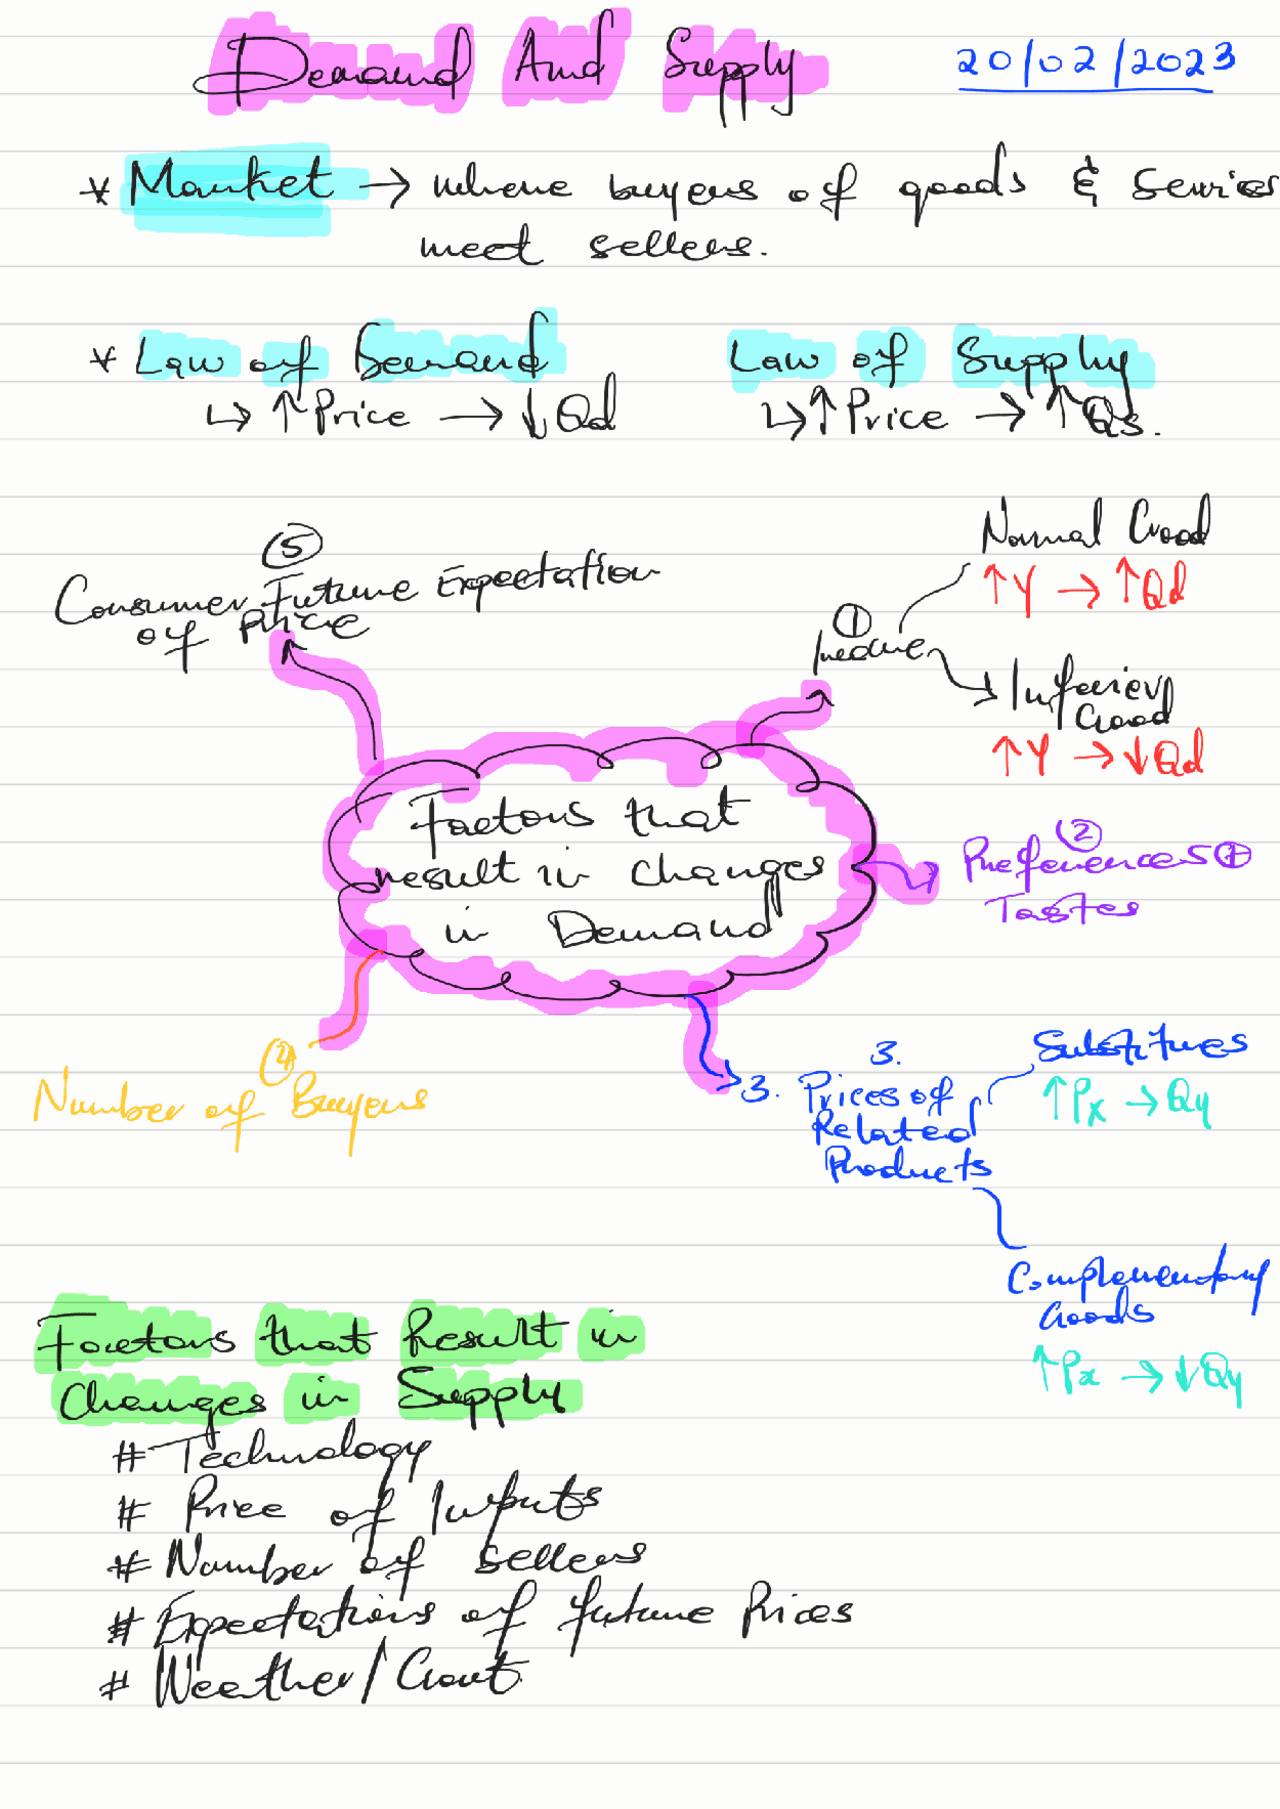 Demand And Supply
20/02/2023
* Market → where buyers of goods & services
meet sellers.
* Law of Demand
↳ ↑ Price → ↓ Qd
Law of Supply
↳ ↑ Price → ↑ Qs.
⑤
Consumer Future Expectation
of Price
①
Income
Normal Good
↑Y → ↑Qd
Inferior
Good
↑Y → ↓Qd
Factors that
result in changes
in Demand
②
Preferences &
Tastes
④
Number of Buyers
3.
3. Prices of
Related
Products
Substitutes
↑Px → Qy
Complementary
Goods
↑Px → ↓Qy
Factors that Result in
Changes in Supply
# Technology
# Price of Inputs
# Number of Sellers
# Expectations of future Prices
# Weather/Govt.